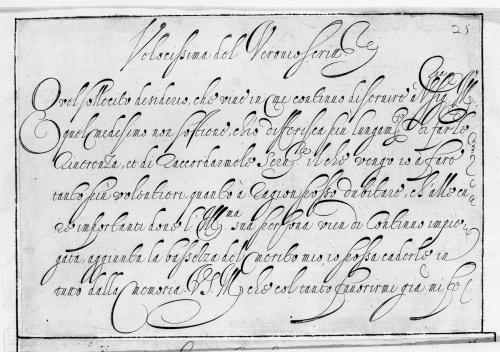 25
Velocissima del Verovio Serin
Quel sollecito desiderio, che vive in me continuo di servire à
quel medesimo non sostiene, ch'io differisca piu lungam.te di farle
Riverenza, et di Raccordarmele Ser.re il che vengo io à fare
tanto piu volentieri quanto à Ragion posso dubitare, ch'alle cu
re importanti dove l'Ill.ma sua persona vien di continuo impie
gata, aggiunta la bassezza del merito mio, io possa caderle in
tutto dalla memoria. V.S. Ill. che col tanto favorirmi già mi